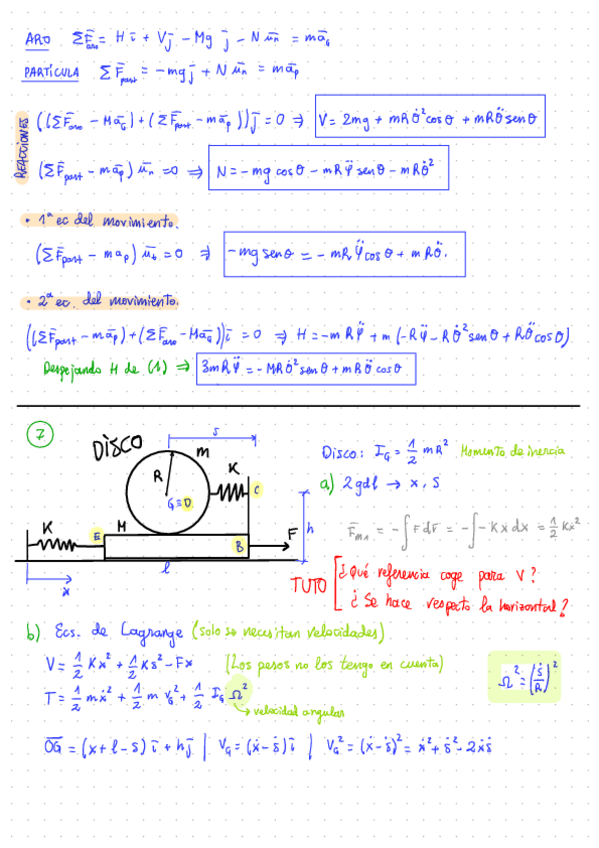 ARO ΣF̄aro = H ī + V j̄ - Mg j̄ - N ūn = m āG
PARTÍCULA ΣF̄part = -mg j̄ + N ūn = m āp
REACCIONES
((ΣF̄aro - M āG) + (ΣF̄part - m āp)) j̄ = 0 ⇒ V = 2mg + mRθ̇² cosθ + mRθ̈ senθ
(ΣF̄part - m āp) ūn = 0 ⇒ N = -mg cosθ - mRφ̈ senθ - mRθ̇²
• 1ª ec del movimiento.
(ΣF̄part - m ap) ūt = 0 ⇒ -mg senθ = -mRφ̈ cosθ + mRθ̈.
• 2ª ec. del movimiento.
((ΣF̄part - m āp) + (ΣF̄aro - M āG)) ī = 0 ⇒ H = -mRφ̈ + m(-Rφ̈ - Rθ̇² senθ + Rθ̈ cosθ)
Despejando H de (1) ⇒ 3mRφ̈ = -MRθ̇² senθ + mRθ̈ cosθ
7
DISCO
s
m
R
K
G≡D
C
K
E
M
B
F
h
x
l
Disco: IG = 1/2 mR² Momento de inercia
a) 2gdl → x, s
F̄m1 = -∫F dr̄ = -∫-Kx dx = 1/2 Kx²
TUTO
¿Qué referencia coge para V?
¿Se hace respecto la horizontal?
b) Ecs. de Lagrange (solo se necesitan velocidades)
V = 1/2 Kx² + 1/2 Ks² - Fx (Los pesos no los tengo en cuenta)
T = 1/2 mẋ² + 1/2 m vG² + 1/2 IG Ω²
velocidad angular
Ω² = (ṡ/R)²
O̅G̅ = (x + l - s) ī + h j̄ | V̄G = (ẋ - ṡ) ī | VG² = (ẋ - ṡ)² = ẋ² + ṡ² - 2ẋṡ